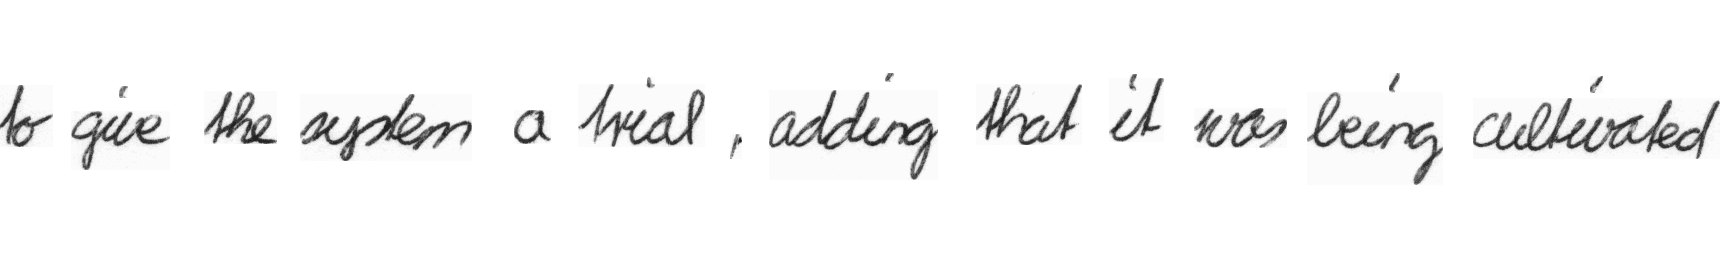 to give the system a trial, adding that it was being cultivated